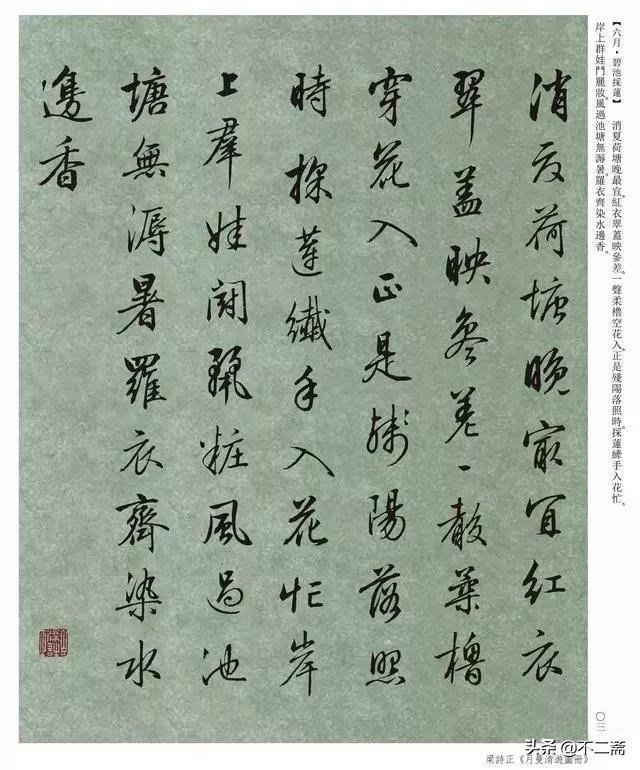 【六月·碧池採蓮】 消夏荷塘晚最宜。紅衣翠蓋映參差。一聲柔櫓空花入。正是殘陽落照時。採蓮縴手入花忙。
岸上群娃鬥麗妝。風過池塘無溽暑。羅衣齊染水邊香。
消夏荷塘晚冣宜紅衣
翠蓋映參差一聲柔櫓
穿花入正是殘陽落照
時採蓮纖手入花忙岸
上羣娃鬪麗粧風過池
塘無溽暑羅衣齊染水
邊香
〇三
头条 @不二斋
梁詩正《月曼清遊圖冊》